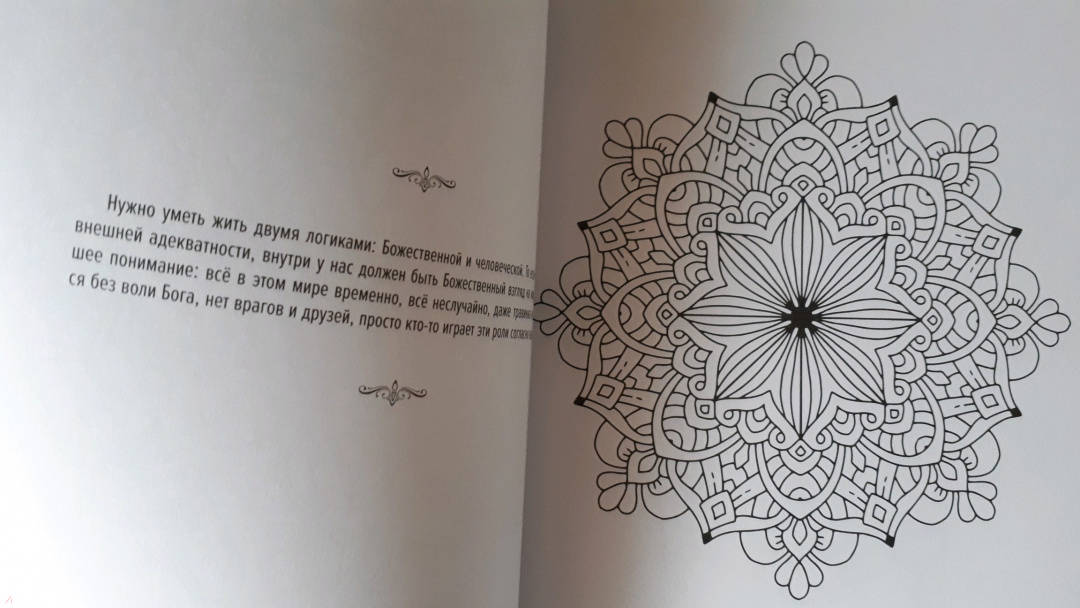 Нужно уметь жить двумя логиками: Божественной и человеческой.
внешней адекватности, внутри у нас должен быть Божественный взгляд
шее понимание: всё в этом мире временно, всё неслучайно, даже
ся без воли Бога, нет врагов и друзей, просто кто-то играет эти роли согласно